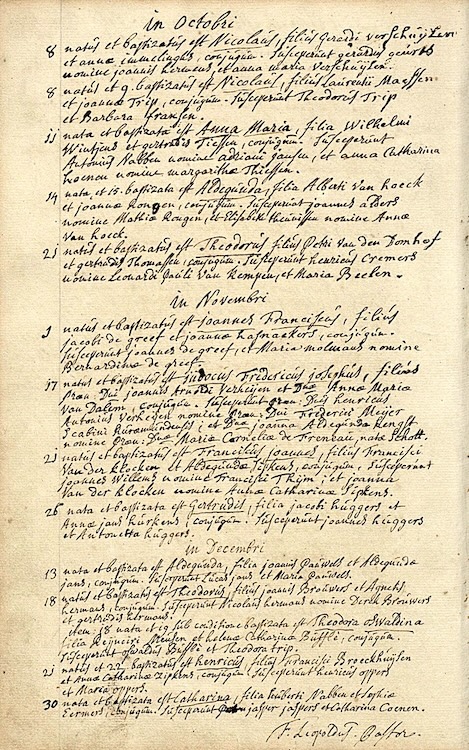 in Octobri
8 natus et baptizatus est Nicolaus, filius Gerardi verschuijlen
et annæ emmelingks, conjugum. Susceperunt gerardus geurts
nomine joannis hermens, et anna maria verschuijlen.
8 natus et 9. baptizatus est Nicolaus, filius Laurentii Maessen
et joannæ Trip, conjugum. Susceperunt Theodorus Trip
et Barbara fransen.
11 nata et baptizata est Anna Maria, filia Wilhelmi
et gertrudis Tiessen, conjugum. Susceperunt
Antonius Nabben nomine adriani jansen, et anna Catharina
nomine margarithæ Thiessen.
14 nata, et 15. baptizata est Aldegunda, filia Alberti Van hoeck
et joannæ Rongen, conjugum. Susceperunt joannes alders
nomine Mathiæ Rongen, et Elisabeth theunissen nomine Annæ
Van hoeck.
21 natus et baptizatus est Theodorus filius Petri Van den Domhof
et gertrudis Thomassen, conjugum. Susceperunt henricus Cremers
nomine Leonardi Pauli Van Kempen, et Maria Beelen.
in Novembri
3 natus et baptizatus est joannes Franciscus, filius
jacobi de greef et joannæ, conjugum.
Susceperunt joannes de greef, et Maria molmans nomine
Bernardinæ de greef
17 natus et baptizatus est judocus Fredericus josephus, filius
Præn: Dni joannis Arnoldi Verheijen et Dnæ Annæ Maria
Van Dalem, conjugum. Susceperunt præn: Dnus henricus
Antonius Verheijen nomine Præn: Dni Frederici Meijer
Scabini Ruræmundensis; et Dna joanna Aldegunda Rengst
nomine Præn: Dnæ Mariæ Corneliæ de Freneau, natæ Schott.
21 natus et baptizatus est Franciscus joannes, filius Francisci
Van der Klocken et Aldegundæ Sipkens, conjugum, Susceperunt
joannes Willems nomine Francisci Thijm, et joanna
Van der Klocken nomine Annæ Catharinæ Sipkens.
26 nata et baptizata est Gertrudis, filia jacobi huggers et
Annæ jans hurkens, conjugum. Susceperunt joannes huggers
et Antonetta huggers.
in Decembri
13 nata et baptizata est Aldegunda, filia joannis pauwels et Aldegundæ
jans, conjugum. Susceperunt Lucas jans et Maria Pauwels.
18 natus et baptizatus est Theodorus, filius joannis Brouwers et Agnetis
hermans, conjugum. Susceperunt Nicolaus hermans nomine Derck Brouwers
et gertrudis hermans.
item: 18 nata et 19 sub conditione baptizata est Theodora oswaldina
filia Reijneri et helenæ Catharinæ Büssli, conjugum.
Susceperunt oswaldus Büssli et Theodora trip.
21 natus et 22. baptizatus est henricus, filius Francisci Broeckhuijsen
et Annæ Catharinæ Zipkens, conjugum. Susceperunt henricus oppers
et Maria oppers.
30 nata et baptizata est Catharina, filia huberti Nabben et Sophiæ
Eermers, conjugum. Susceperunt jasper jaspers et Catharina Coenen.
F. Leopoldus Pastor.